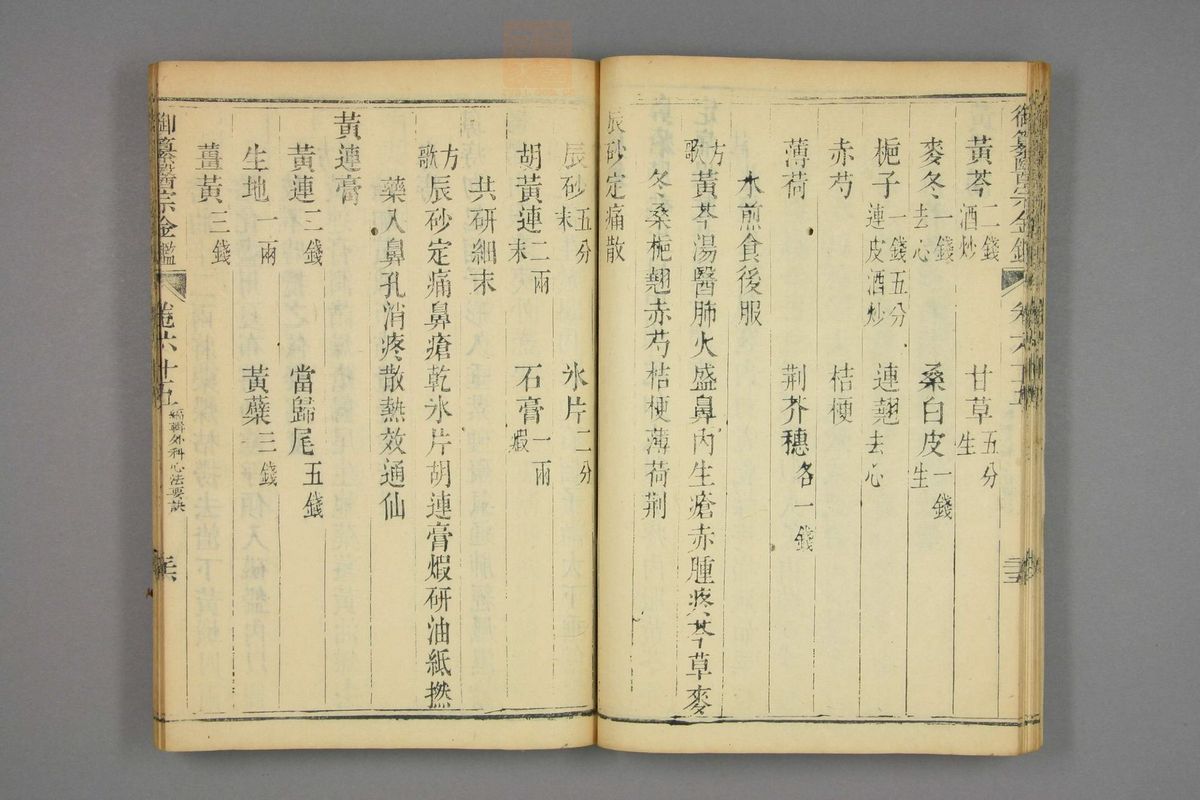 黃芩二錢酒炒 甘草五分生
麥冬一錢去心 桑白皮一錢生
梔子一錢五分連皮酒炒 連翹去心
赤芍 桔梗
薄荷 荆芥穗各一錢
水煎食後服
方歌黃芩湯醫肺火盛鼻內生瘡赤腫疼芩草麥
冬桑梔翹赤芍桔梗薄荷荆
辰砂定痛散
辰砂五分末 氷片二分
胡黃連二兩末 石膏一兩煆
共研細末
方歌辰砂定痛鼻瘡乾氷片胡連膏煆研油紙撚
藥入鼻孔消疼散熱效通仙
黃連膏
黃連二錢 當歸尾五錢
生地一兩 黃蘗三錢
薑黃三錢
御纂醫宗金鑑 卷六十五 編輯外科心法要訣